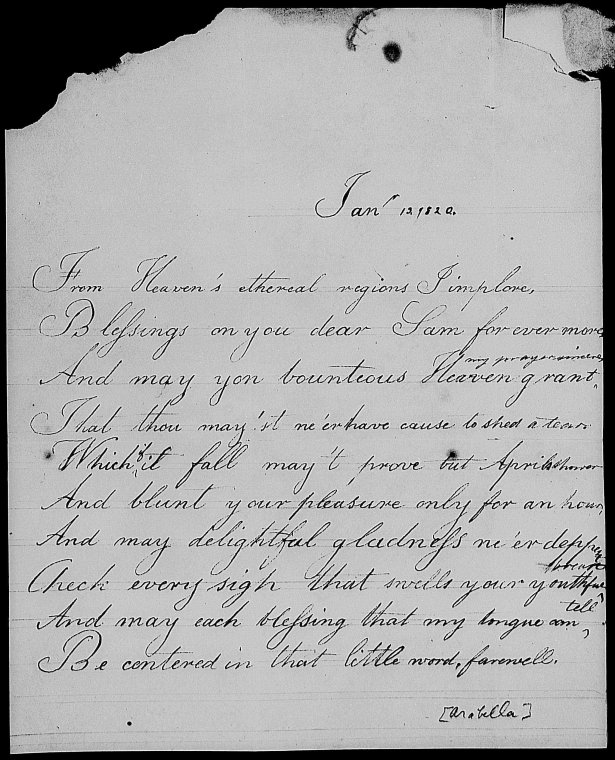 Jan' 12, 1820.
From Heaven's ethereal regions I implore,
Blessings on you dear Sam for ever more,
And may yon bounteous Heaven grant my prayer sincere,
That thou may'st ne'er have cause to shed a tear.
Which if it fall may't prove but April shower
And blunt your pleasure only for an hour,
And may delightful gladness ne'er
Check every sigh that swells your youthful
And may each blessing that my tongue can tell,
Be centered in that little word, farewell.
[Arabella]